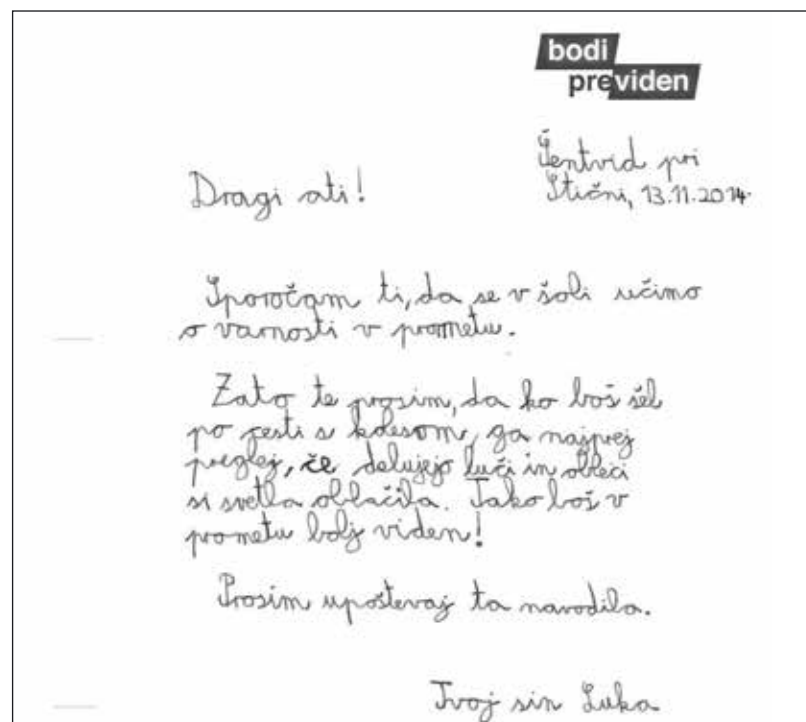 bodi
previden
Šentvid pri
Stični, 13.11.2014.
Dragi ati!
Sporočam ti, da se v šoli učimo
o varnosti v prometu.
Zato te prosim, da ko boš šel
po cesti s kolesom, ga najprej
preglej, če delujejo luči in obleci
si svetla oblačila. Tako boš v
prometu bolj viden!
Prosim upoštevaj ta navodila.
Tvoj sin Luka